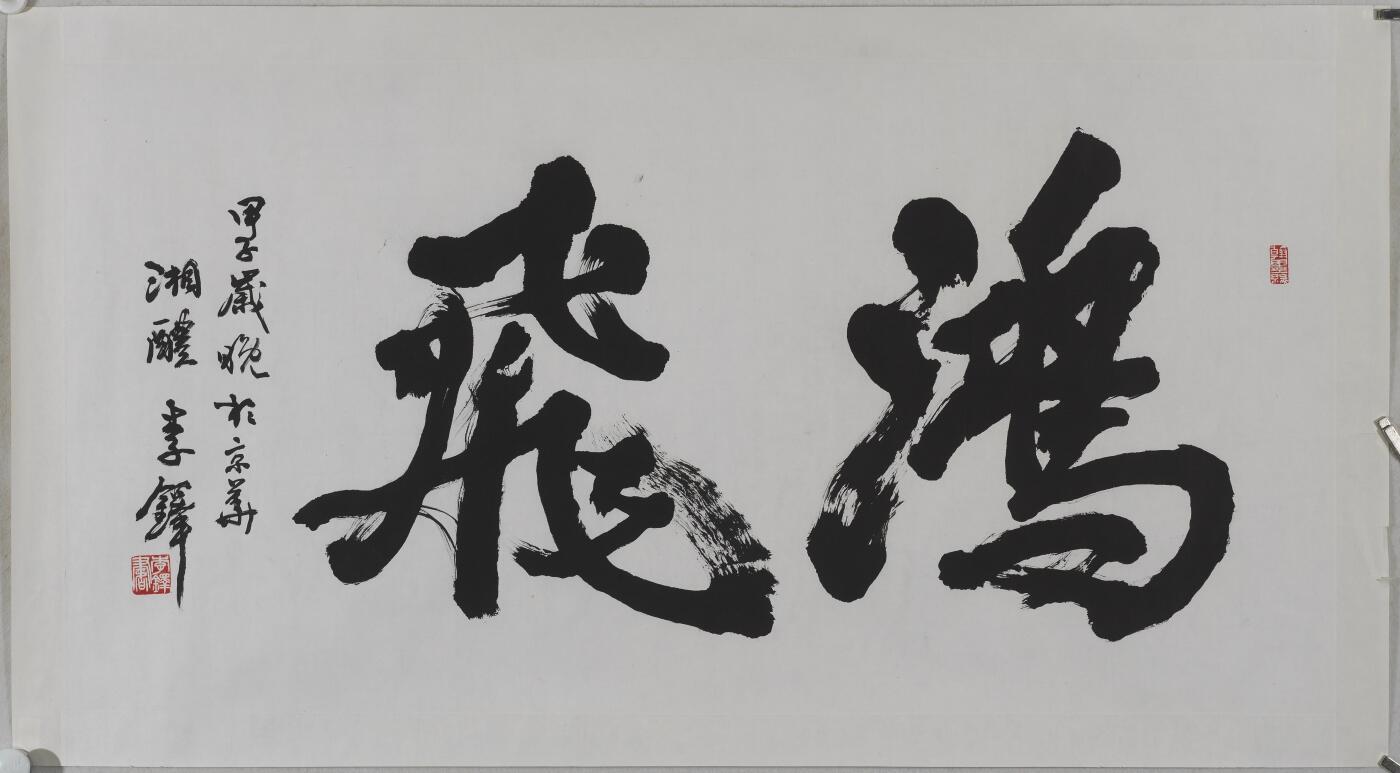 鴻飛
甲子歲晚於京華
湘醴 李鐸
李鐸書